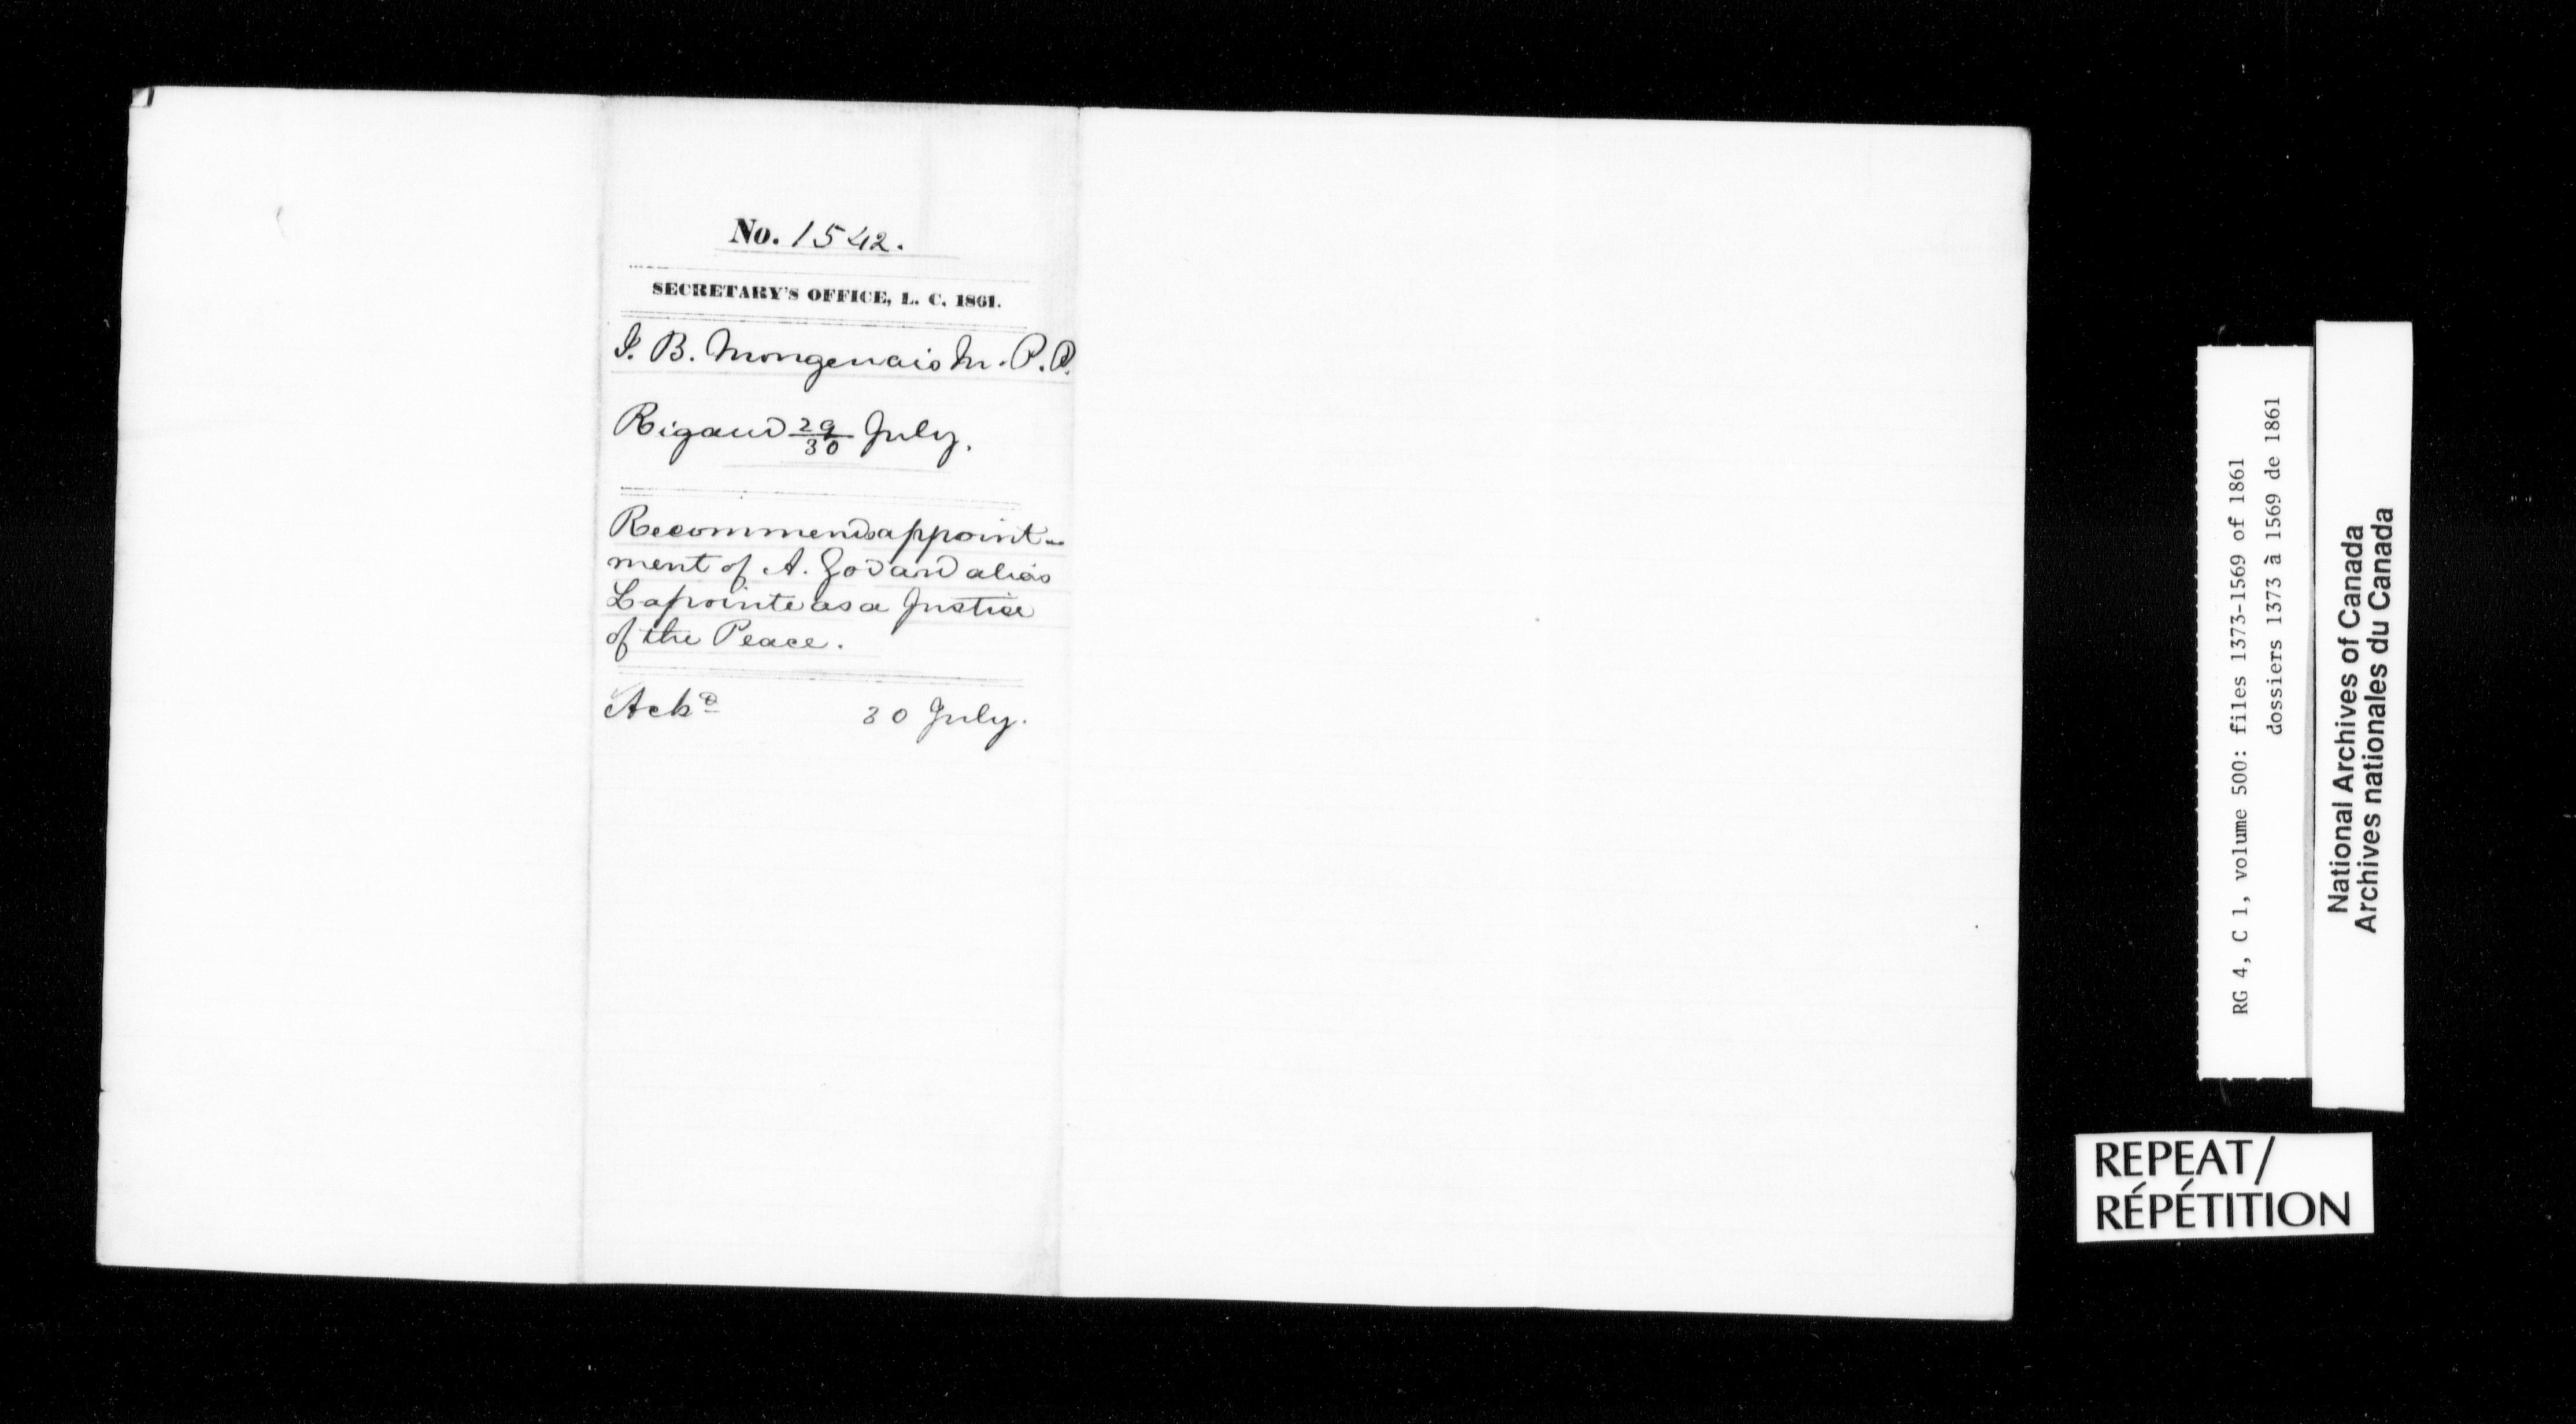 No. 1542.
SECRETARY'S OFFICE, L. C. 1861.
J. B. Mongenais M. P. P.
Rigaud 29/30 July.
Recommends appoint-
ment of A. Godard alias
Lapointe as a Justice
of the Peace.
Ackd 30 July.
RG 4, C 1, volume 500: files 1373-1569 of 1861
dossiers 1373 à 1569 de 1861
National Archives of Canada
Archives nationales du Canada
REPEAT/
RÉPÉTITION